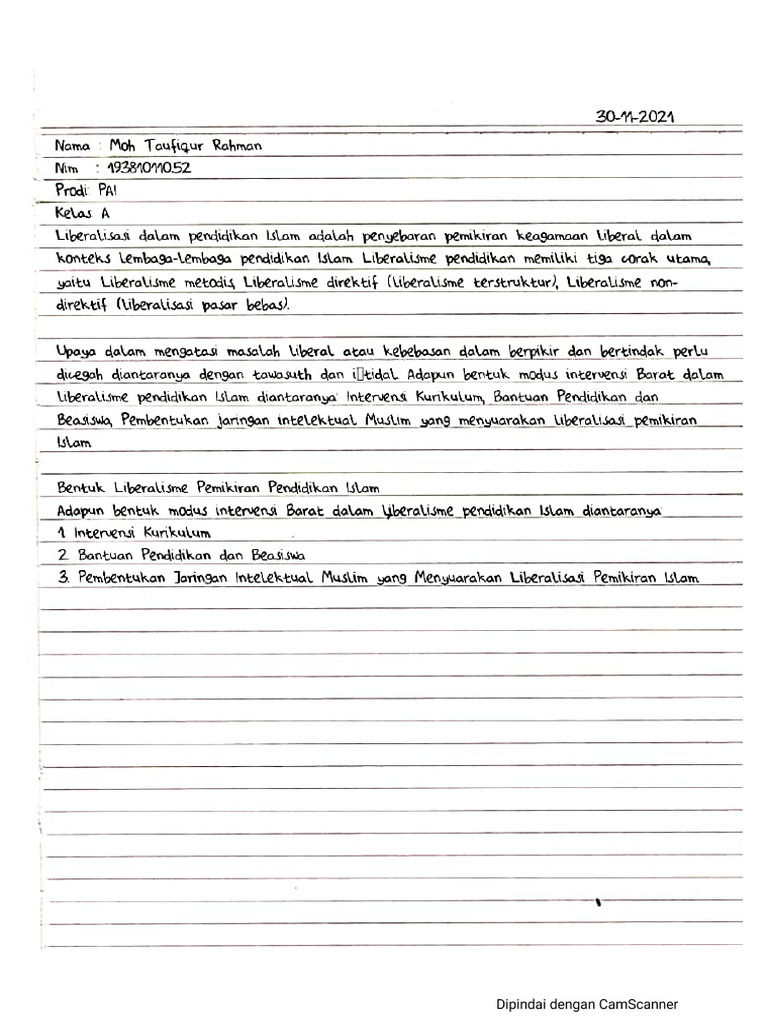 30-11-2021
Nama : Moh Taufiqur Rahman
Nim : 19381011052
Prodi PAI
Kelas A
Liberalisasi dalam pendidikan Islam adalah penyebaran pemikiran keagamaan liberal dalam
konteks lembaga-lembaga pendidikan Islam Liberalisme pendidikan memiliki tiga corak utama,
yaitu Liberalisme metodis, Liberalisme direktif (liberalisme terstruktur), Liberalisme non-
direktif (liberalisasi pasar bebas).
Upaya dalam mengatasi masalah liberal atau kebebasan dalam berpikir dan bertindak perlu
dicegah diantaranya dengan tawasuth dan i▯tidal Adapun bentuk modus intervensi Barat dalam
liberalisme pendidikan Islam diantaranya Intervensi Kurikulum, Bantuan Pendidikan dan
Beasiswa, Pembentukan jaringan intelektual Muslim yang menyuarakan liberalisasi pemikiran
Islam
Bentuk Liberalisme Pemikiran Pendidikan Islam
Adapun bentuk modus intervensi Barat dalam Liberalisme pendidikan Islam diantaranya
1 Intervensi Kurikulum
2 Bantuan Pendidikan dan Beasiswa
3. Pembentukan Jaringan Intelektual Muslim yang Menyuarakan Liberalisasi Pemikiran Islam
Dipindai dengan CamScanner